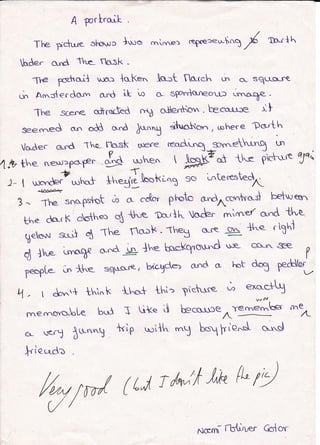 A portrait.
The picture shows two mimes representing to Darth
Vader and The Mask.
The portrait was taken last March in a square
in Amsterdam and it is a spontaneous image.
The scene attracted my attention, because it
seemed an odd and funny situation, where Darth
Vader and The Mask were reading something in
the newspaper and when I look at the picture again
2- I wonder what they're looking so interested
3- The snapshot is a color photo and contrast between
the dark clothes of the Darth Vader mimer and the
yelow suit of The Mask. They are on the right
of the image and in the background we can see
people in the square, bicycles and a hot dog peddler
4. I don't think that this picture is exactly
memorable but I like it because remember me
a very funny trip with my boyfriend and
friends.
Very good (but I don't like the pic)
Noemí Moliner Gotor